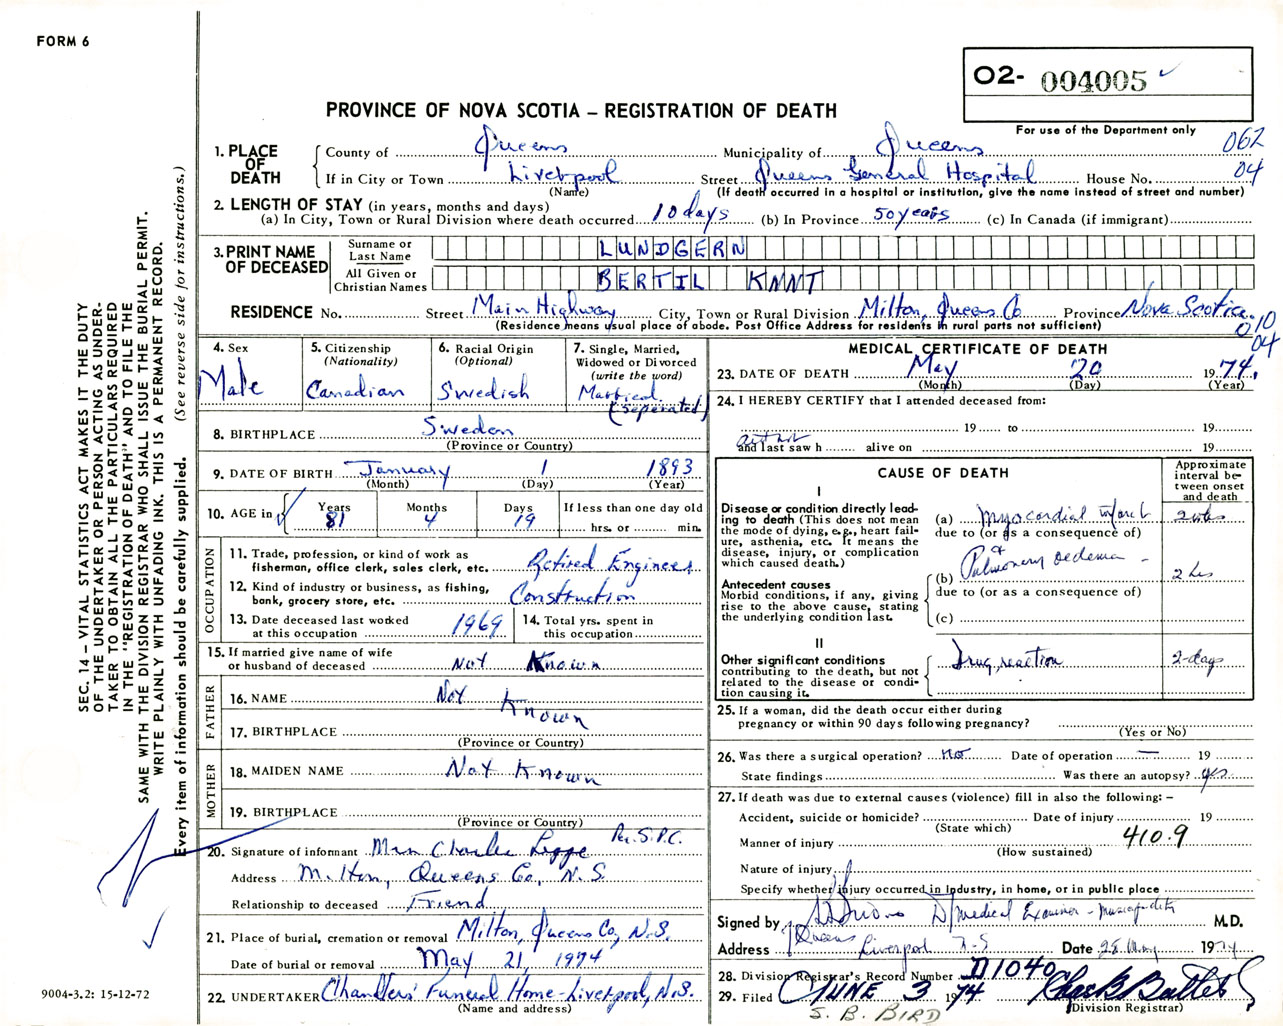 FORM 6
O2- 004005 ✓
PROVINCE OF NOVA SCOTIA – REGISTRATION OF DEATH
For use of the Department only
062
04
1. PLACE OF DEATH
County of Queens Municipality of Queens
If in City or Town Liverpool Street Queens General Hospital House No.
(Name) (If death occurred in a hospital or institution, give the name instead of street and number)
2. LENGTH OF STAY (in years, months and days)
(a) In City, Town or Rural Division where death occurred 10 days (b) In Province 50 years (c) In Canada (if immigrant)
3. PRINT NAME OF DECEASED
Surname or Last Name LUNDGERN
All Given or Christian Names BERTIL KNNT
RESIDENCE No. Street Main Highway City, Town or Rural Division Milton, Queens Co Province Nova Scotia.
(Residence means usual place of abode. Post Office Address for residents in rural parts not sufficient)
010
04
4. Sex
Male
5. Citizenship
(Nationality)
Canadian
6. Racial Origin
(Optional)
Swedish
7. Single, Married,
Widowed or Divorced
(write the word)
Married
(Seperated)
8. BIRTHPLACE Sweden
(Province or Country)
9. DATE OF BIRTH January 1 1893
(Month) (Day) (Year)
10. AGE in
Years Months Days If less than one day old
81 4 19 hrs. or min.
OCCUPATION
11. Trade, profession, or kind of work as
fisherman, office clerk, sales clerk, etc. Retired Engineer
12. Kind of industry or business, as fishing,
bank, grocery store, etc. Construction
13. Date deceased last worked
at this occupation 1969
14. Total yrs. spent in
this occupation
15. If married give name of wife
or husband of deceased Not Known
FATHER
16. NAME Not Known
17. BIRTHPLACE
(Province or Country)
MOTHER
18. MAIDEN NAME Not Known
19. BIRTHPLACE
(Province or Country)
Per. S.P.C.
20. Signature of informant Mrs Charles
Address Milton, Queens Co., N.S.
Relationship to deceased Friend
21. Place of burial, cremation or removal Milton, Queens Co, N.S.
Date of burial or removal May 21, 1974
22. UNDERTAKER Chandlers' Funeral Home - Liverpool, N.S.
(Name and address)
MEDICAL CERTIFICATE OF DEATH
23. DATE OF DEATH May 20 1974.
(Month) (Day) (Year)
24. I HEREBY CERTIFY that I attended deceased from:
19 to 19
and last saw h alive on 19
CAUSE OF DEATH
Approximate
interval be-
tween onset
and death
I
Disease or condition directly lead-
ing to death (This does not mean
the mode of dying, e.g., heart fail-
ure, asthenia, etc. It means the
disease, injury, or complication
which caused death.)
(a) Myocardial infarct 2 wks
due to (or as a consequence of)
Antecedent causes
Morbid conditions, if any, giving
rise to the above cause, stating
the underlying condition last.
(b) Pulmonary oedema - 2 hrs
due to (or as a consequence of)
(c)
II
Other significant conditions
contributing to the death, but not
related to the disease or condi-
tion causing it.
Drug reaction 2 days
25. If a woman, did the death occur either during
pregnancy or within 90 days following pregnancy?
(Yes or No)
26. Was there a surgical operation? no Date of operation — 19
State findings Was there an autopsy? yes
27. If death was due to external causes (violence) fill in also the following: –
Accident, suicide or homicide? Date of injury 19
(State which)
Manner of injury 410.9
(How sustained)
Nature of injury
Specify whether injury occurred in Industry, in home, or in public place
Signed by D/Medical Examiner - Municipality M.D.
Queens
Address Liverpool N.S Date 28 May 1974
28. Division Registrar's Record Number D1040
29. Filed JUNE 3 1974
(Division Registrar)
S. B. BIRD
SEC. 14 – VITAL STATISTICS ACT MAKES IT THE DUTY
OF THE UNDERTAKER OR PERSON ACTING AS UNDER-
TAKER TO OBTAIN ALL THE PARTICULARS REQUIRED
IN THE "REGISTRATION OF DEATH" AND TO FILE THE
SAME WITH THE DIVISION REGISTRAR WHO SHALL ISSUE THE BURIAL PERMIT.
WRITE PLAINLY WITH UNFADING INK. THIS IS A PERMANENT RECORD.
Every item of information should be carefully supplied. (See reverse side for instructions.)
9004-3.2: 15-12-72